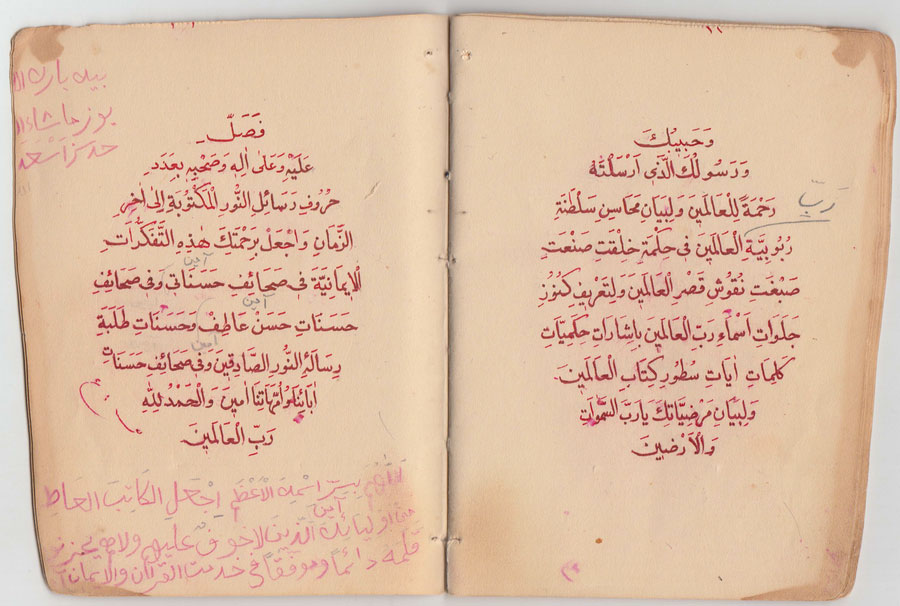 وَحَبِيبُكَ
وَرَسُولُكَ الَّذِى اَرْسَلْتَهُ
رَبِّ
رَحْمَةً لِلْعَالَمِينَ وَلِبَيَانِ مَحَاسِنِ سَلْطَنَةِ
رُبُوبِيَّةِ الْعَالَمِينَ فِى حِكْمَةِ خِلْقَتِ صَنْعَتِ
صِبْغَتِ نُقُوشِ قَصْرِ الْعَالَمِينَ وَلِتَعْرِيفِ كُنُوزِ
جَلَوَاتِ اَسْمَاءِ رَبِّ الْعَالَمِينَ بِاِشَارَاتِ حِكَمِيَّاتِ
كَلِمَاتِ اٰيَاتِ سُطُورِ كِتَابِ الْعَالَمِينَ
وَلِبَيَانِ مَرْضِيَّاتِكَ يَارَبَّ السَّمٰوَاتِ
وَالْاَرَضِينَ
فَصَلِّ
عَلَيْهِ وَعَلٰى اٰلِهِ وَصَحْبِهِ بِعَدَدِ
حُرُوفِ رَسَائِلِ النُّورِ الْمَكْتُوبَةِ اِلٰى اٰخِرِ
الزَّمَانِ وَاجْعَلْ بِرَحْمَتِكَ هٰذِهِ التَّفَكُّرَاتِ
الْاِيمَانِيَّةَ فِى صَحَائِفِ حَسَنَاتِى وَفِى صَحَائِفِ
آمين
حَسَنَاتِ حَسَنْ عَاطِفْ وَحَسَنَاتِ طَلَبَةِ
آمين
رِسَالَةِ النُّورِ الصَّادِقِينَ وَفِى صَحَائِفِ حَسَنَاتِ
آمين
اٰبَائِنَا وَاُمَّهَاتِنَا اٰمِينَ وَالْحَمْدُ لِلّٰهِ
رَبِّ الْعَالَمِينَ
اللّٰهم بسرّ اسمك الاعظم اجعل الكاتب العاطف
آمين
من اوليائك الذين لاخوف عليهم ولا هم يحزنون
قلمه دائماً وموفقاً فى خدمت القرآن والايمان